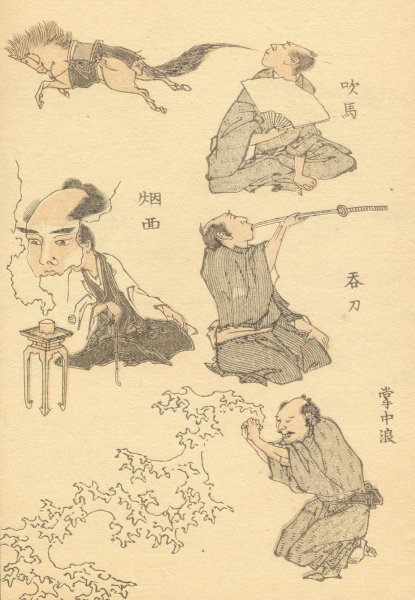 吹馬
烟面
呑刀
掌中浪